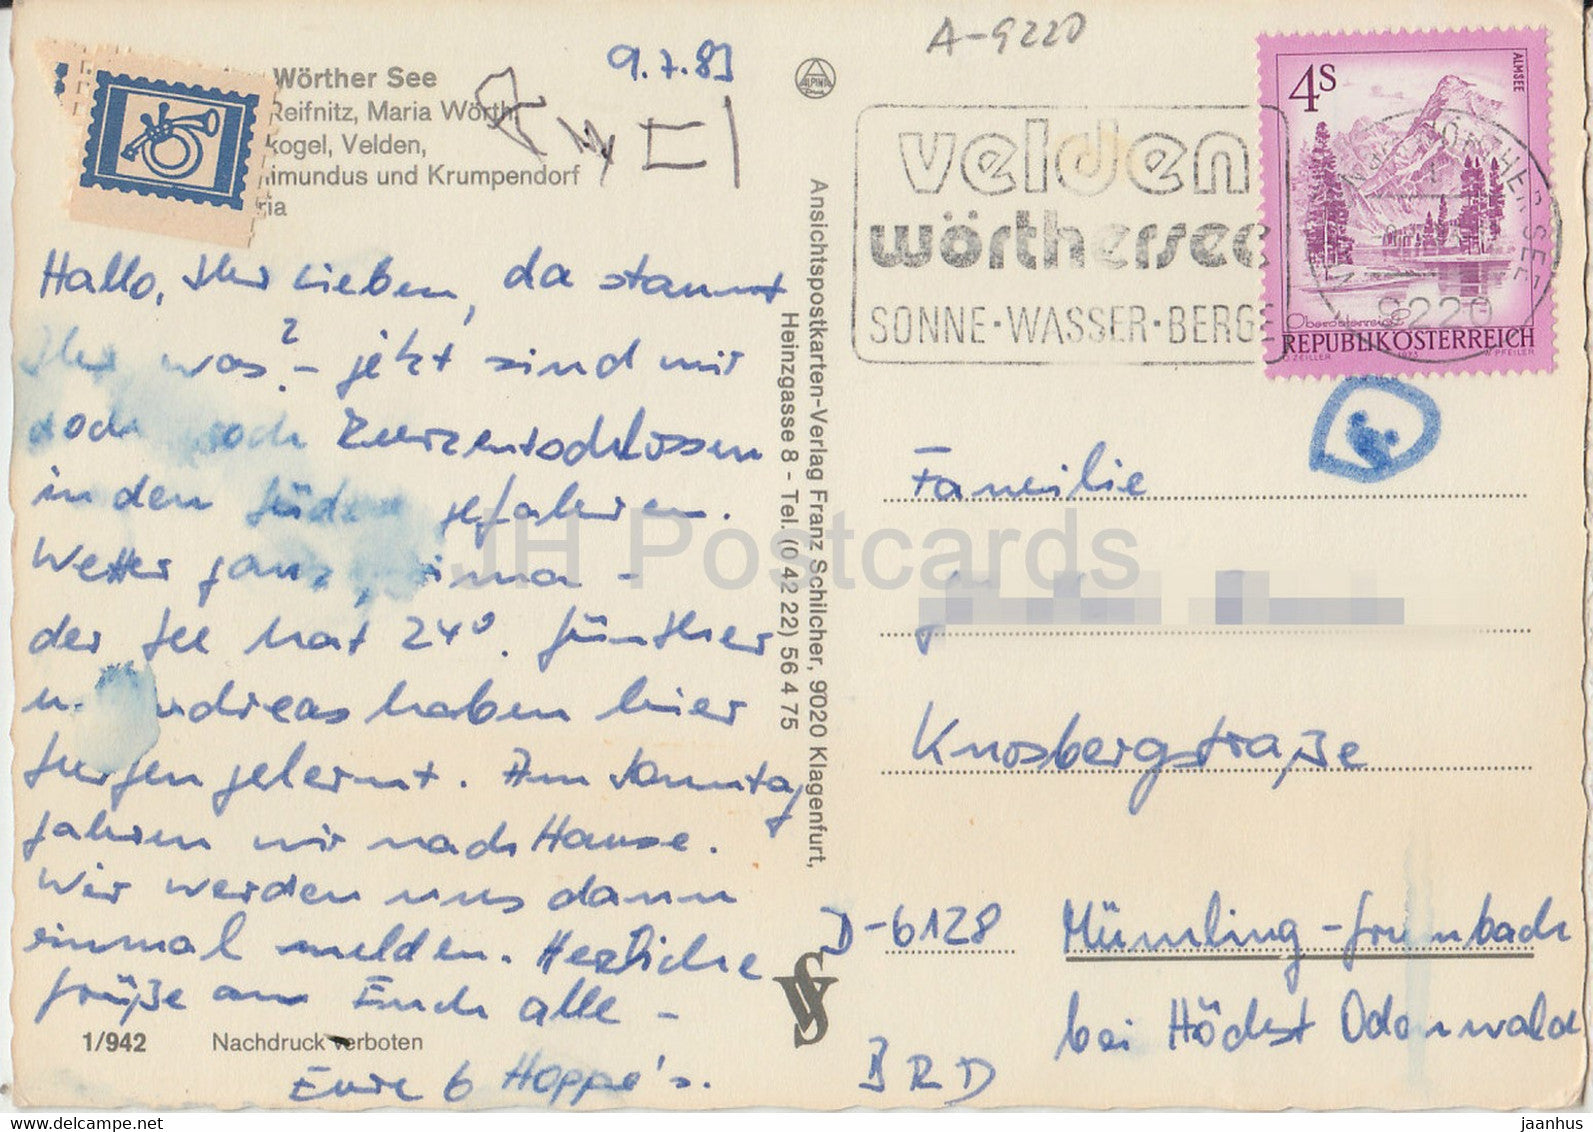 Wörther See
Reifnitz, Maria Wörth,
kogel, Velden,
imundus und Krumpendorf
ria
9.7.83
A-9220
Hallo, Ihr Lieben, da staunt
Ihr was? - jetzt sind wir
doch noch kurzentschlossen
in den Süden gefahren.
Wetter ganz prima -
der See hat 24°. Günther
u. Andreas haben hier
surfen gelernt. Am Sonntag
fahren wir nach Hause.
Wir werden uns dann
einmal melden. Herzliche
Grüße an Euch alle -
Eure 6 Hoppe's.
1/942 Nachdruck verboten
Ansichtspostkarten-Verlag Franz Schilcher, 9020 Klagenfurt,
Heinzgasse 8 - Tel. (0 42 22) 56 4 75
ALPINA
velden
wörthersee
SONNE·WASSER·BERGE
4S
ALMSEE
Oberösterreich
REPUBLIK ÖSTERREICH
O. ZEILLER 1973 W. PFEILER
9220
Familie
Knosbergstraße
D-6128 Mümling-Grumbach
bei Höchst Odenwald
BRD
SV
JH Postcards
delcampe.net
jaanhus